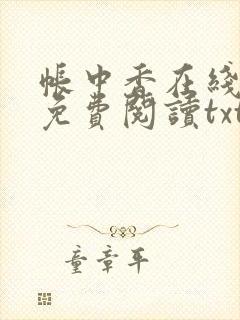 帳中香在綫
免費閱讀txt
童章平